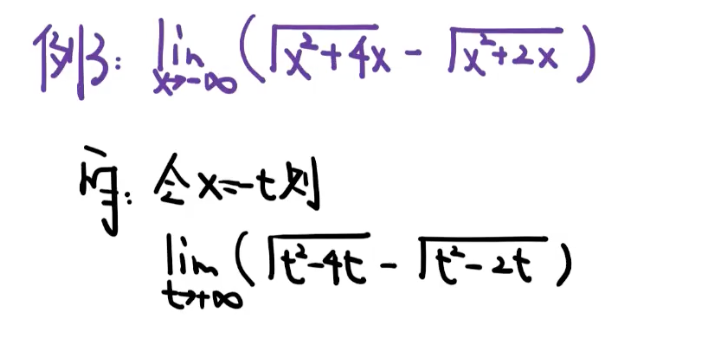 例3: lim_{x→-∞} (√(x²+4x) - √(x²+2x))
解: 令x=-t则
lim_{t→+∞} (√(t²-4t) - √(t²-2t))